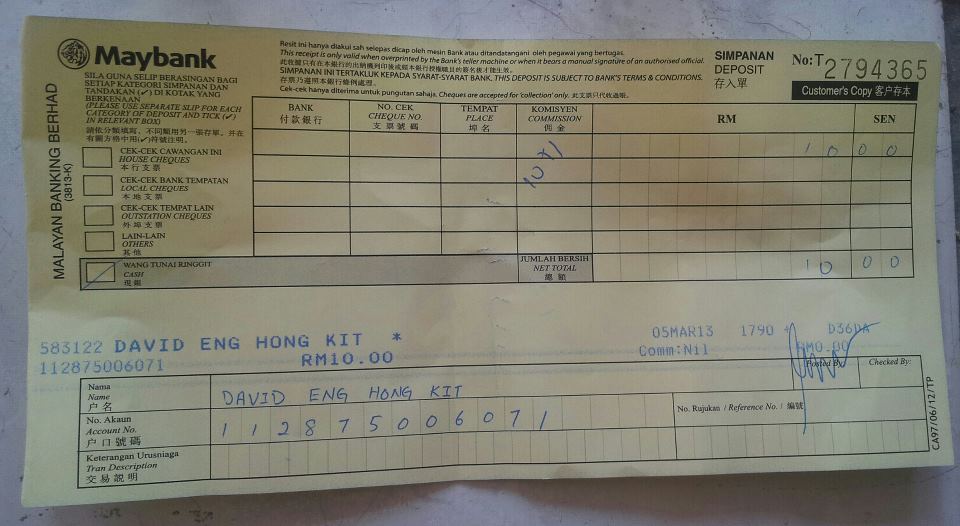 Maybank
MALAYAN BANKING BERHAD
(3813-K)
SILA GUNA SELIP BERASINGAN BAGI
SETIAP KATEGORI SIMPANAN DAN
TANDAKAN (✓) DI KOTAK YANG
BERKENAAN
(PLEASE USE SEPARATE SLIP FOR EACH
CATEGORY OF DEPOSIT AND TICK (✓)
IN RELEVANT BOX)
請依分類填寫，不同類用另一張存單。并在
有關方格中用(✓)符號注明。
Resit ini hanya diakui sah selepas dicap oleh mesin Bank atau ditandatangani oleh pegawai yang bertugas.
This receipt is only valid when overprinted by the Bank's teller machine or when it bears a manual signature of an authorised official.
SIMPANAN INI TERTAKLUK KEPADA SYARAT-SYARAT BANK. THIS DEPOSIT IS SUBJECT TO BANK'S TERMS & CONDITIONS.
存款乃遵照本銀行條例處理。
Cek-cek hanya diterima untuk pungutan sahaja. Cheques are accepted for 'collection' only. 此支票只代收過賬。
SIMPANAN
DEPOSIT
存入單
No: T 2794365
Customer's Copy 客户存本
BANK
付款銀行
NO. CEK
CHEQUE NO.
支票號碼
TEMPAT
PLACE
埠名
KOMISYEN
COMMISSION
佣金
RM
SEN
CEK-CEK CAWANGAN INI
HOUSE CHEQUES
本行支票
CEK-CEK BANK TEMPATAN
LOCAL CHEQUES
本地支票
CEK-CEK TEMPAT LAIN
OUTSTATION CHEQUES
外埠支票
LAIN-LAIN
OTHERS
其他
WANG TUNAI RINGGIT
CASH
現銀
10x1
10 00
JUMLAH BERSIH
NET TOTAL
總額
10 00
583122 DAVID ENG HONG KIT *
05MAR13 1790 * D36DA
112875006071 RM10.00
Comm:Nil RM0.00
Posted By:
Checked By:
Nama
Name
户名
DAVID ENG HONG KIT
No. Akaun
Account No.
户口號碼
112875006071
No. Rujukan / Reference No. / 編號
Keterangan Urusniaga
Tran Description
交易説明
CA97/06/12/TP